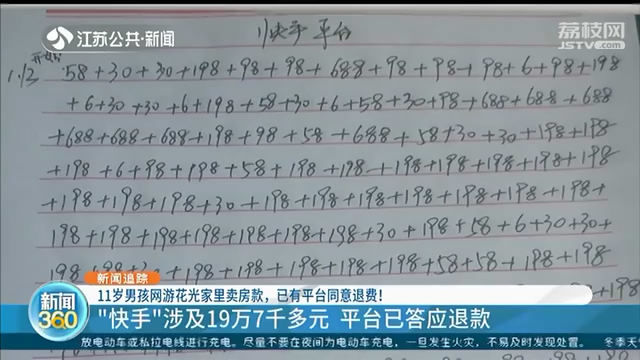 江苏公共·新闻
荔枝网
JSTV.com
快手 平台
开始
1.13 58+30+30+198+98+98+688+98+98+98+6+98+198
+6+30+30+6+198+58+30+6+58+30+98+688+688+688
+688+688+688+198+98+58+688+58+30+30+198+198
+198+6+98+198+58+198+198+198+198+198+198+198
+198+198+198+30+198+198+198+198+198+198+198+
198+198+198+198+198+198+198+30+198+58+6+30+30+
新闻追踪
11岁男孩网游花光家里卖房款，已有平台同意退费！
新闻360
"快手"涉及19万7千多元 平台已答应退款
放电动车或私拉电线进行充电。尽量不要在夜间为电动车充电，一旦发生火灾，不易及时发现处置。 冬季天